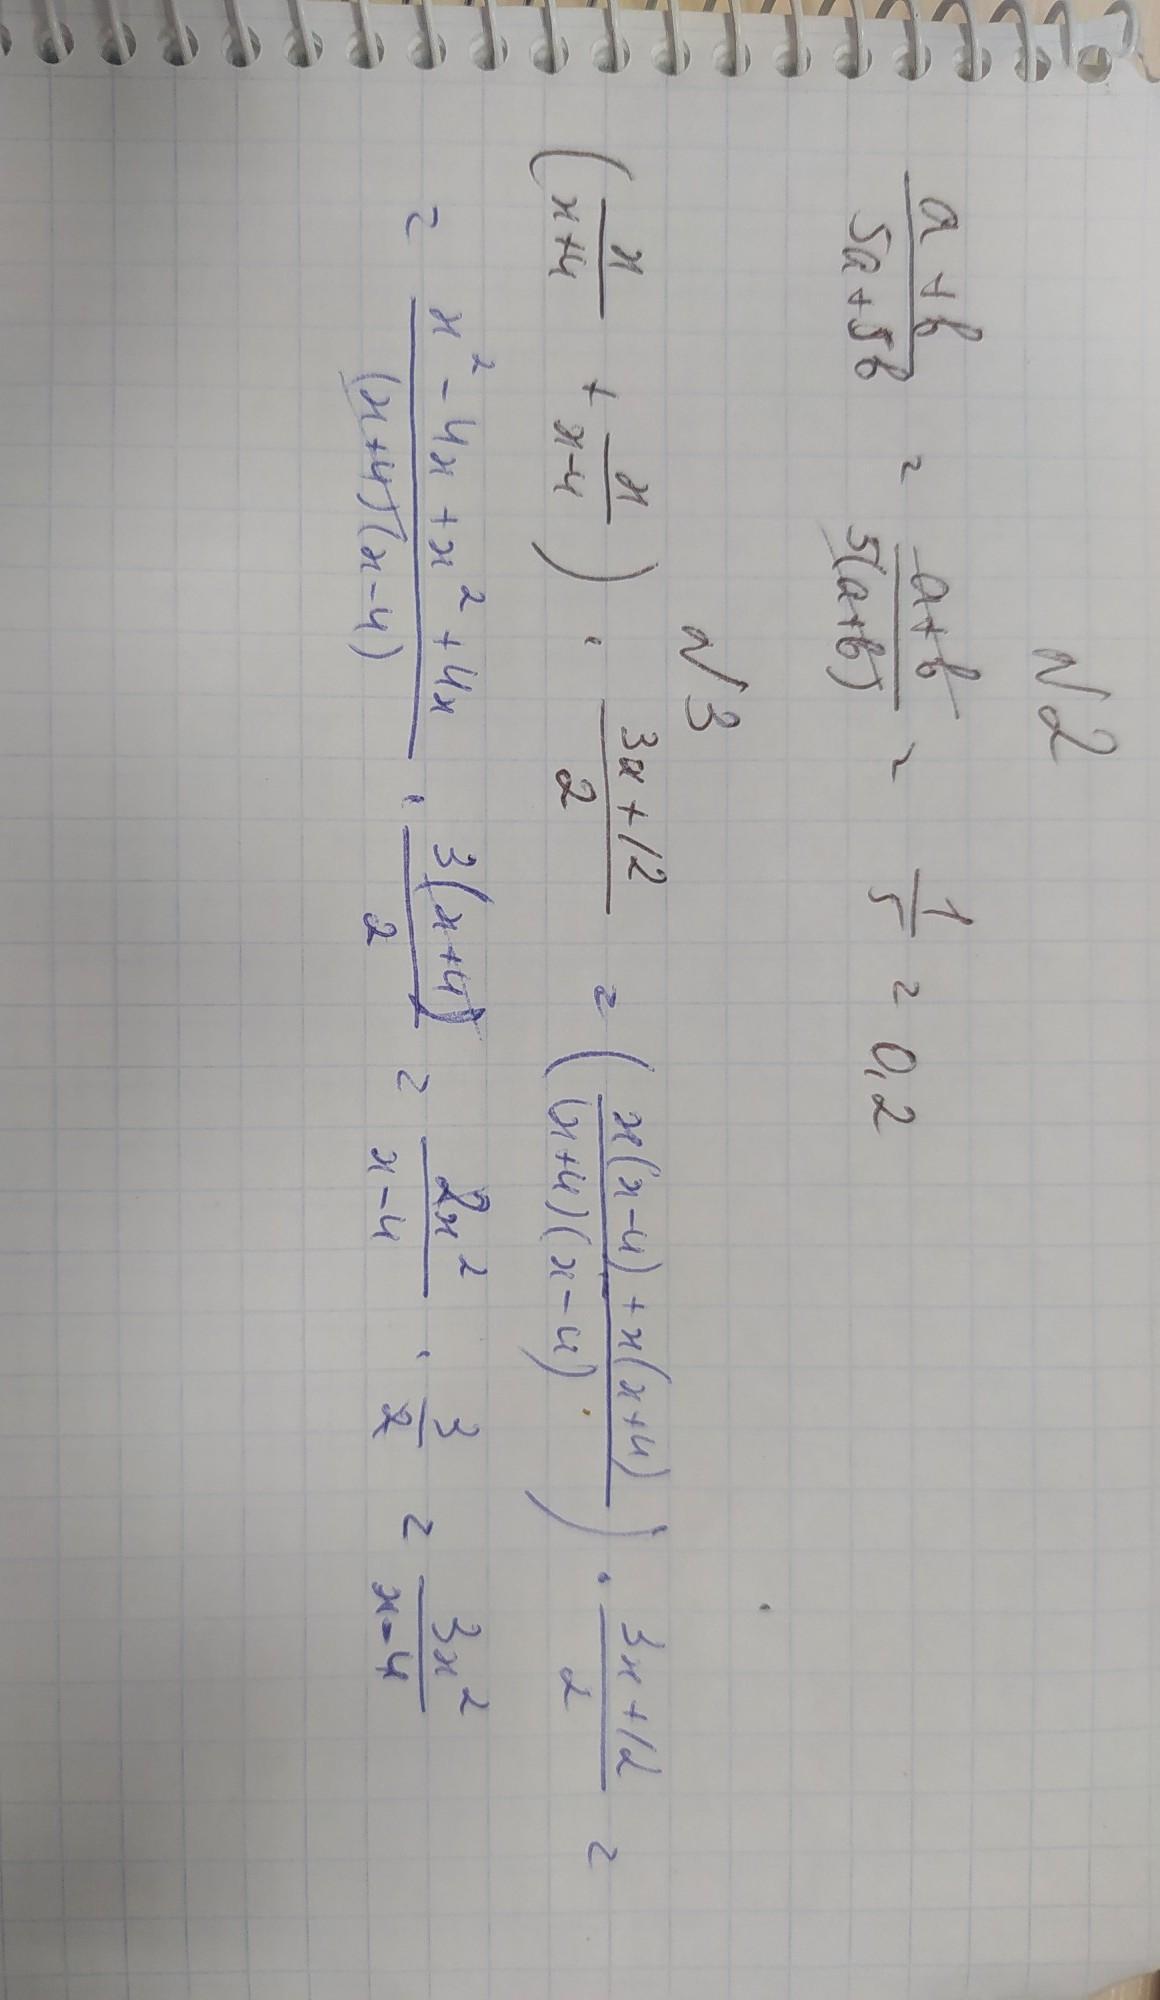 №2
(a+b)/(5a+5b) = (a+b)/(5(a+b)) = 1/5 = 0,2
№3
(x/(x+4) + x/(x-4)) · (3x+12)/2 = ((x(x-4)+x(x+4))/((x+4)(x-4))) · (3x+12)/2 =
= (x²-4x+x²+4x)/((x+4)(x-4)) · (3(x+4))/2 = 2x²/(x-4) · 3/2 = 3x²/(x-4)